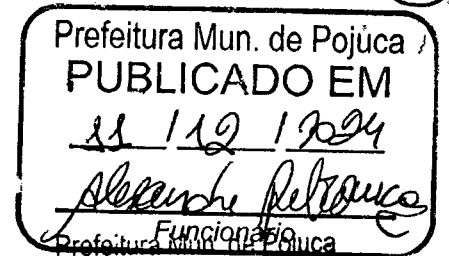 Prefeitura Mun. de Pojuca
PUBLICADO EM
11 / 12 / 2024
Alexandre
Funcionário
Prefeitura Mun. de Pojuca